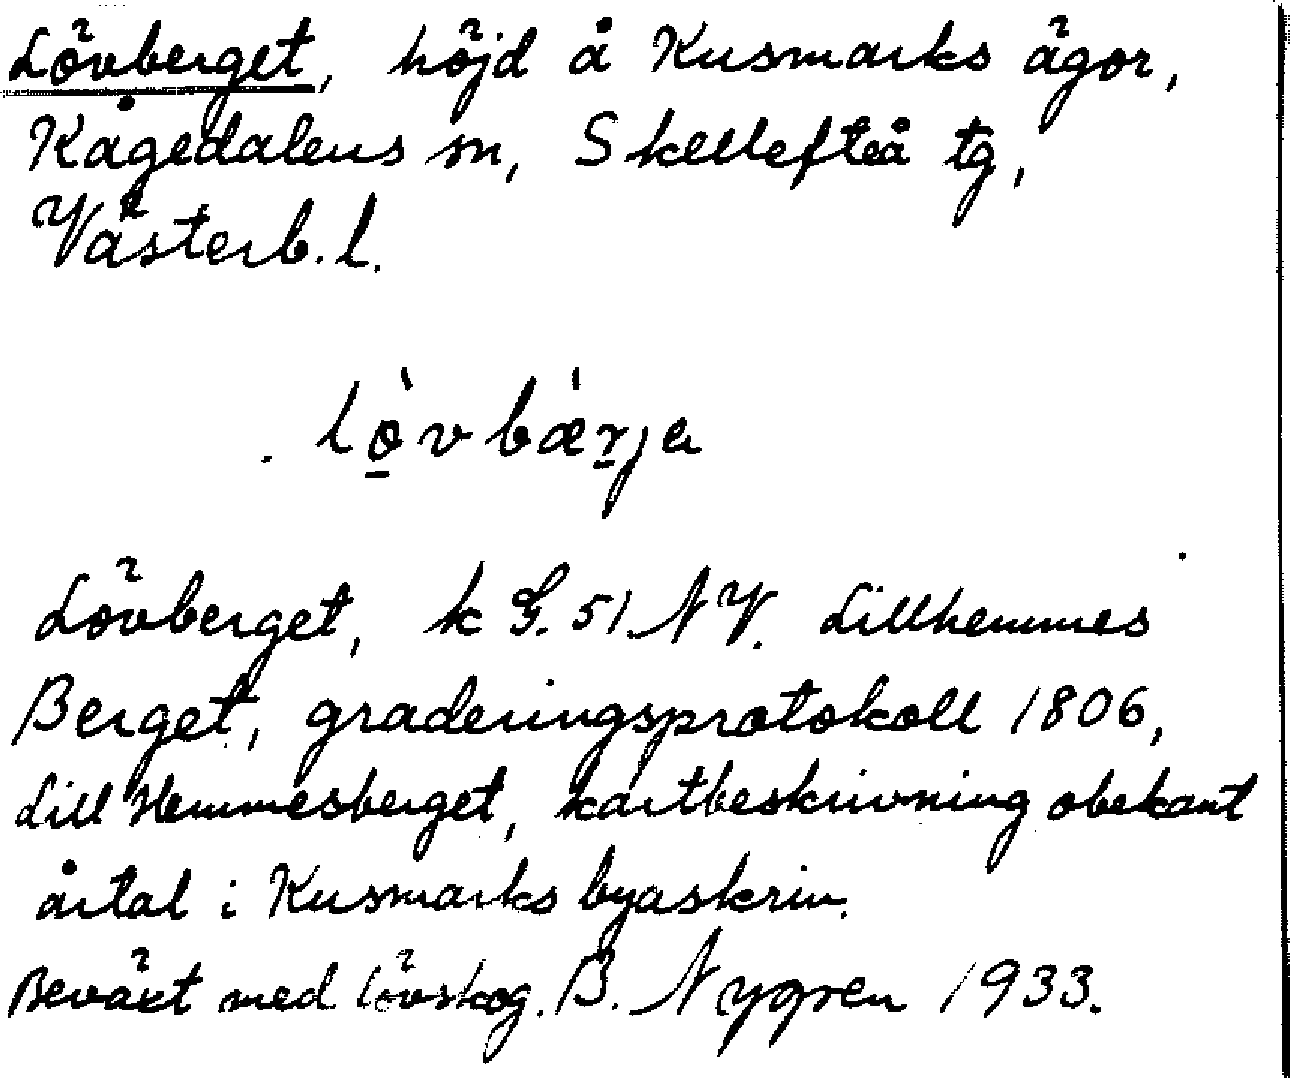 Lövberget, höjd å Kusmarks ägor,
Kågedalens sn, Skellefteå tg,
Västerb. l.
lö̱̀vbæ̀ṟja
Lövberget, k G. 51. NV. Lillhemmes
Berget, graderingsprotokoll 1806,
Lill Hemmesberget, kartbeskrivning obekant
årtal i Kusmarks byaskrin.
Beväxt med lövskog. B. Nygren 1933.